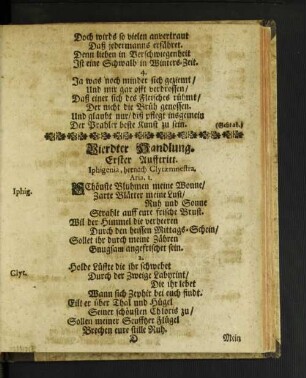 Doch wirds so vielen anvertraut
Daß jedermanns erfähret.
Denn lieben in Verschwiegenheit
Ist eine Schwalb in Winters-Zeit.
4.
Ja was noch minder sich geziemt/
Und mir gar offt verdrossen/
Daß einer sich des Fleisches rühmt/
Der nicht die Brüh genossen.
Und glaubt nur/ diß pflegt insgemein
Der Prahler beste Kunst zu sein. (Gehtab.)
Vierdter Handlung.
Erster Aufftritt.
Iphigenia, hernach Clytemnestra.
Aria. 1.
Iphig. Schönste Bluhmen meine Wonne/
Zarte Blätter meine Lust/
Ruh und Sonne
Strahle auff eure frische Brust.
Wil der Himmel die verheeren
Durch den heissen Mittags-Schein/
Sollet ihr durch meine Zähren
Gnugsam angefrischet sein.
2.
Clyt. Holde Lüffte die ihr schwebet
Durch der Zweige Labyrint/
Die ihr lebet
Wann sich Zephir bei euch findt.
Eilt er über Thal und Hügel
Seiner schönsten Chloris zu/
Sollen meiner Seuffzer Flügel
Brechen eure stille Ruh.
D Mein